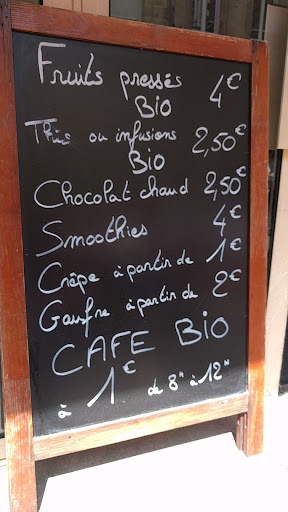 Fruits pressés
Bio 4€
Thés ou infusions
Bio 2,50€
Chocolat chaud 2,50€
Smoothies 4€
Crêpe à partir de 1€
Gaufre à partir de 2€
CAFE BiO
à 1€. de 8H à 12H